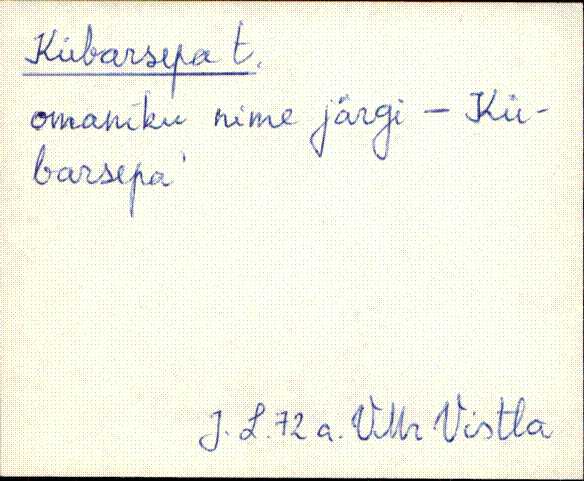 Kübarsepa t.
omaniku nime järgi – Kü-
barsepa'
J. L. 72 a. VMr Vistla